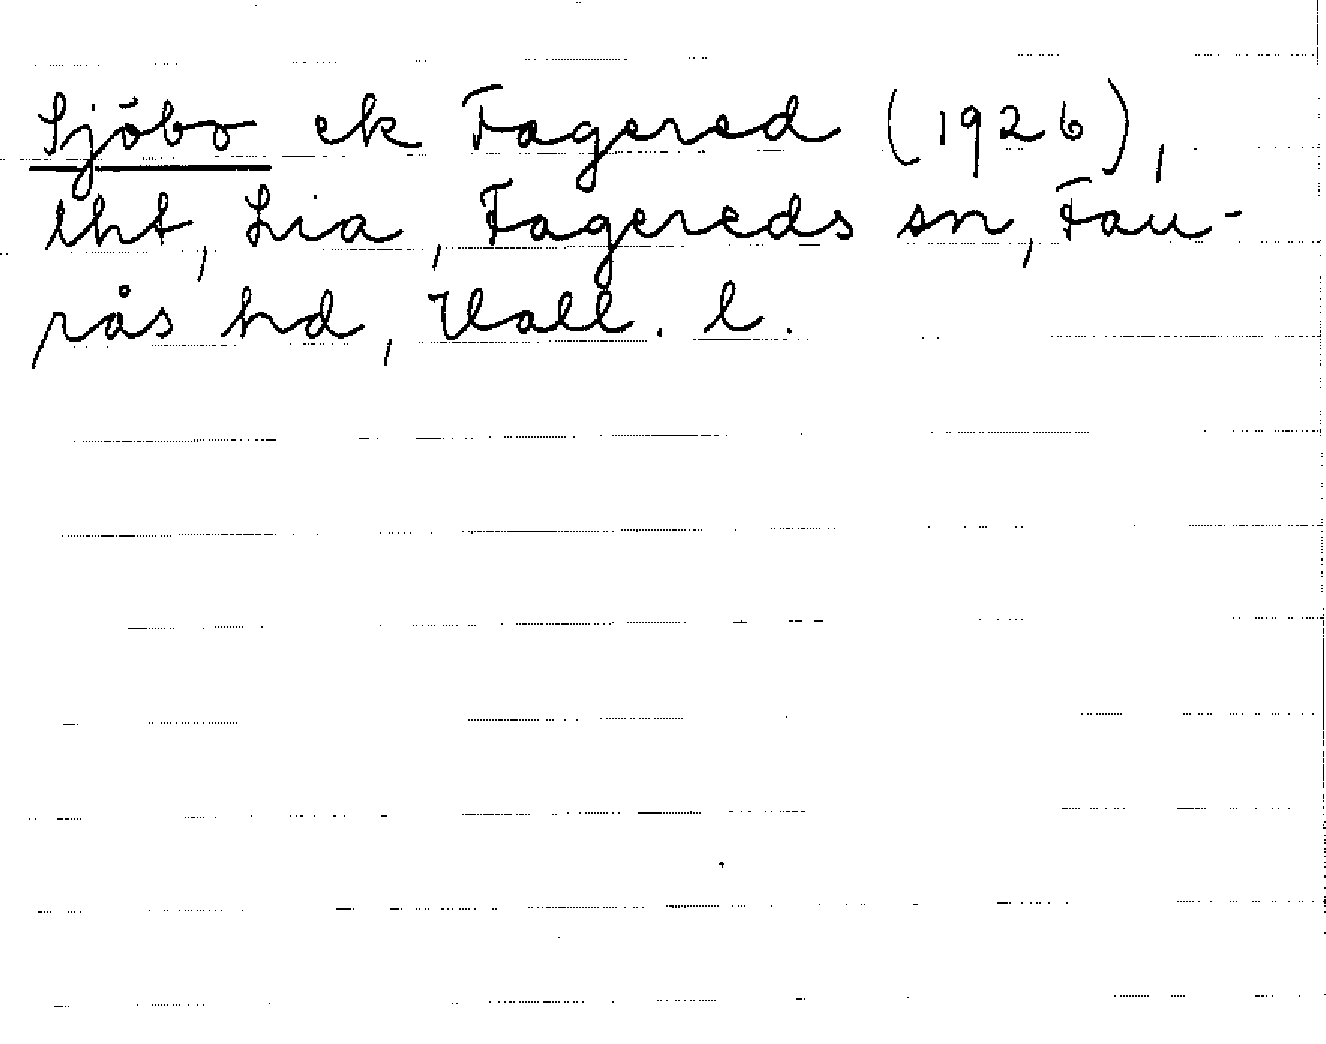 Sjöbo ek Fagered (1926),
lht, Lia, Fagereds sn, Fau-
rås hd, Hall. l.